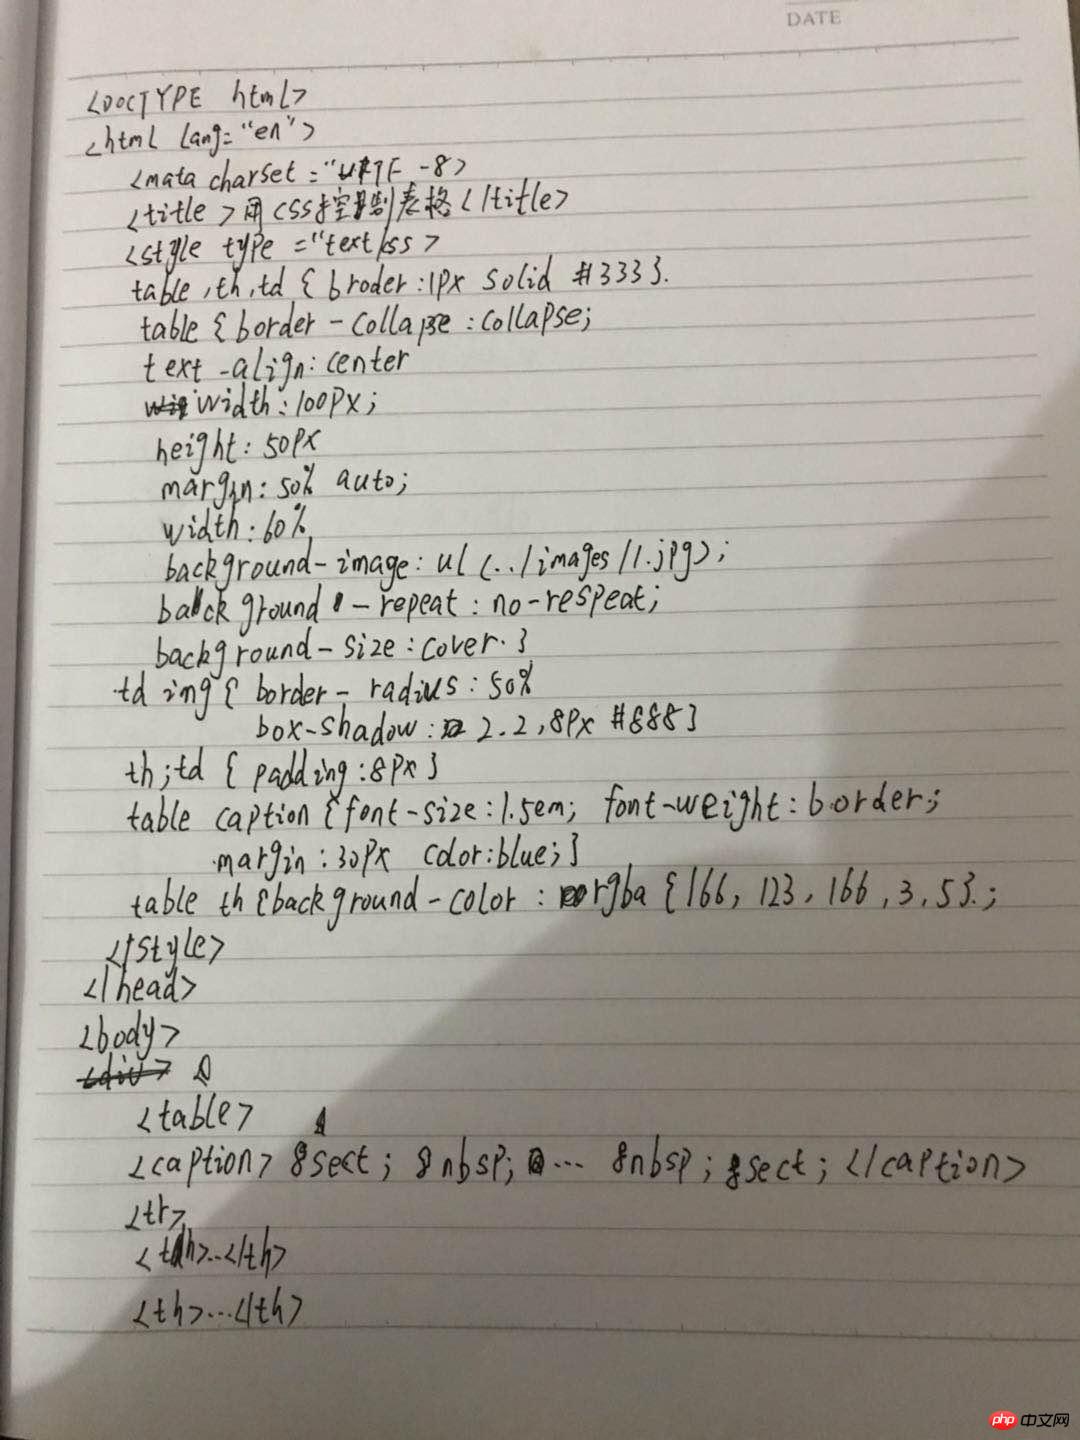 DATE
<DOCTYPE html>
<html lang="en">
<mata charset="UTF-8>
<title>用CSS控制表格</title>
<style type="text/css>
table,th,td{broder:1px solid #333}.
table{border-collapse:collapse;
text-align:center
width:100px;
height:50px
margin:50% auto;
width:60%
background-image:ul(../images/1.jpg);
background-repeat:no-respeat;
background-size:cover.}
td ing{border-radius:50%
box-shadow:2.2,8px #888}
th;td{padding:8px}
table caption{font-size:1.5em; font-weight:border;
margin:30px color:blue;}
table th{background-color:rgba{166,123,166,3,5}.;
</style>
</head>
<body>
<table>
<caption>&sect;&nbsp;...&nbsp;&sect;</caption>
<tr>
<th>...</th>
<th>...</th>
php 中文网